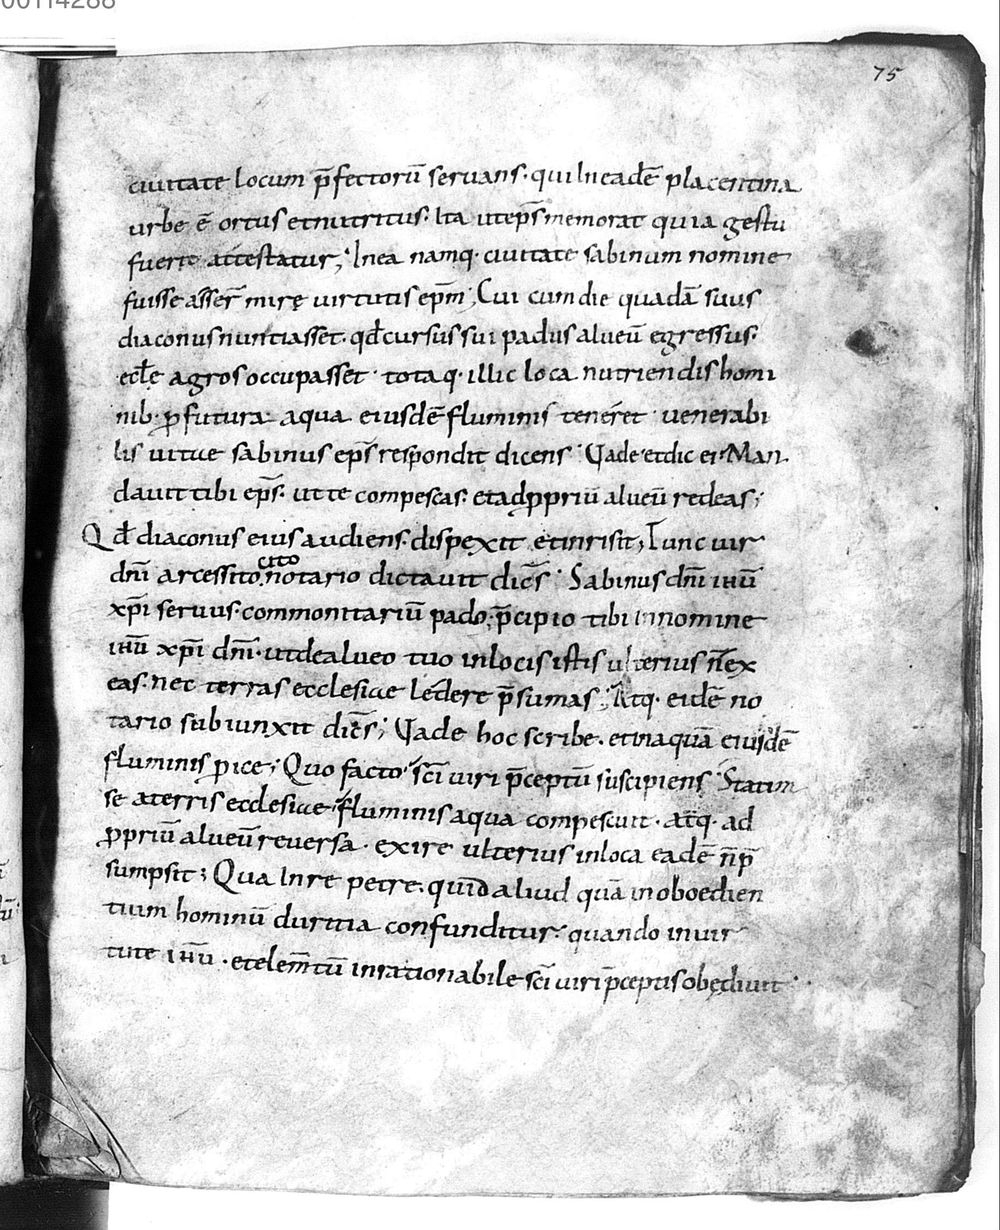 00114288
75
ciuitate locum p̄fectorū seruans· qui In eadē placentina
urbe ē ortus et nutritus· Ita ut ep̄s memorat quia gestu
fuerit attestatur; In ea namq· ciuitate sabinum nomine
fuisse asser̄ mirę uirtutis ep̄m; Cui cum die quadā suus
diaconus nuntiasset· qđ cursus sui padus alueū egressus·
ecłe agros occupasset· totaq· illic loca nutriendis homi
nib· ꝓfutura· aqua eiusdē fluminis teneret· uenerabi
lis uitae sabinus ep̄s respondit dicens· Uade et dic ei· Man
dauit tibi ep̄s· ut te compescas· et ad ꝓpriū alueū redeas;
Qđ diaconus eius audiens· dispexit et inrisit; Tunc uir
dn̄i arcessito cito notario dictauit dicēs· Sabinus dn̄i ihū
xp̄i seruus· commonitariū pado· p̄cipio tibi In nomine
ihū xp̄i dn̄i· ut de alueo tuo in locis istis ulterius n̄ ex
eas· nec terras ecclesiae ledere p̄sumas; Atq· eidē no
tario subiunxit dicēs; Uade hoc scribe· et in aquā eiusdē
fluminis ꝓice; Quo facto sc̄i uiri p̄ceptū suscipiens· Statim
se a terris ecclesiae fluminis aqua compescuit· atq· ad
ꝓpriū alueū reuersa· exire ulterius in loca eadē n̄ p̄
sumpsit; Qua In re petre· quid aliud quā inoboedien
tium hominū duritia confunditur· quando in uir
tute ihū· et elem̄tū inrationabile sc̄i uiri p̄ceptis obędiuit·